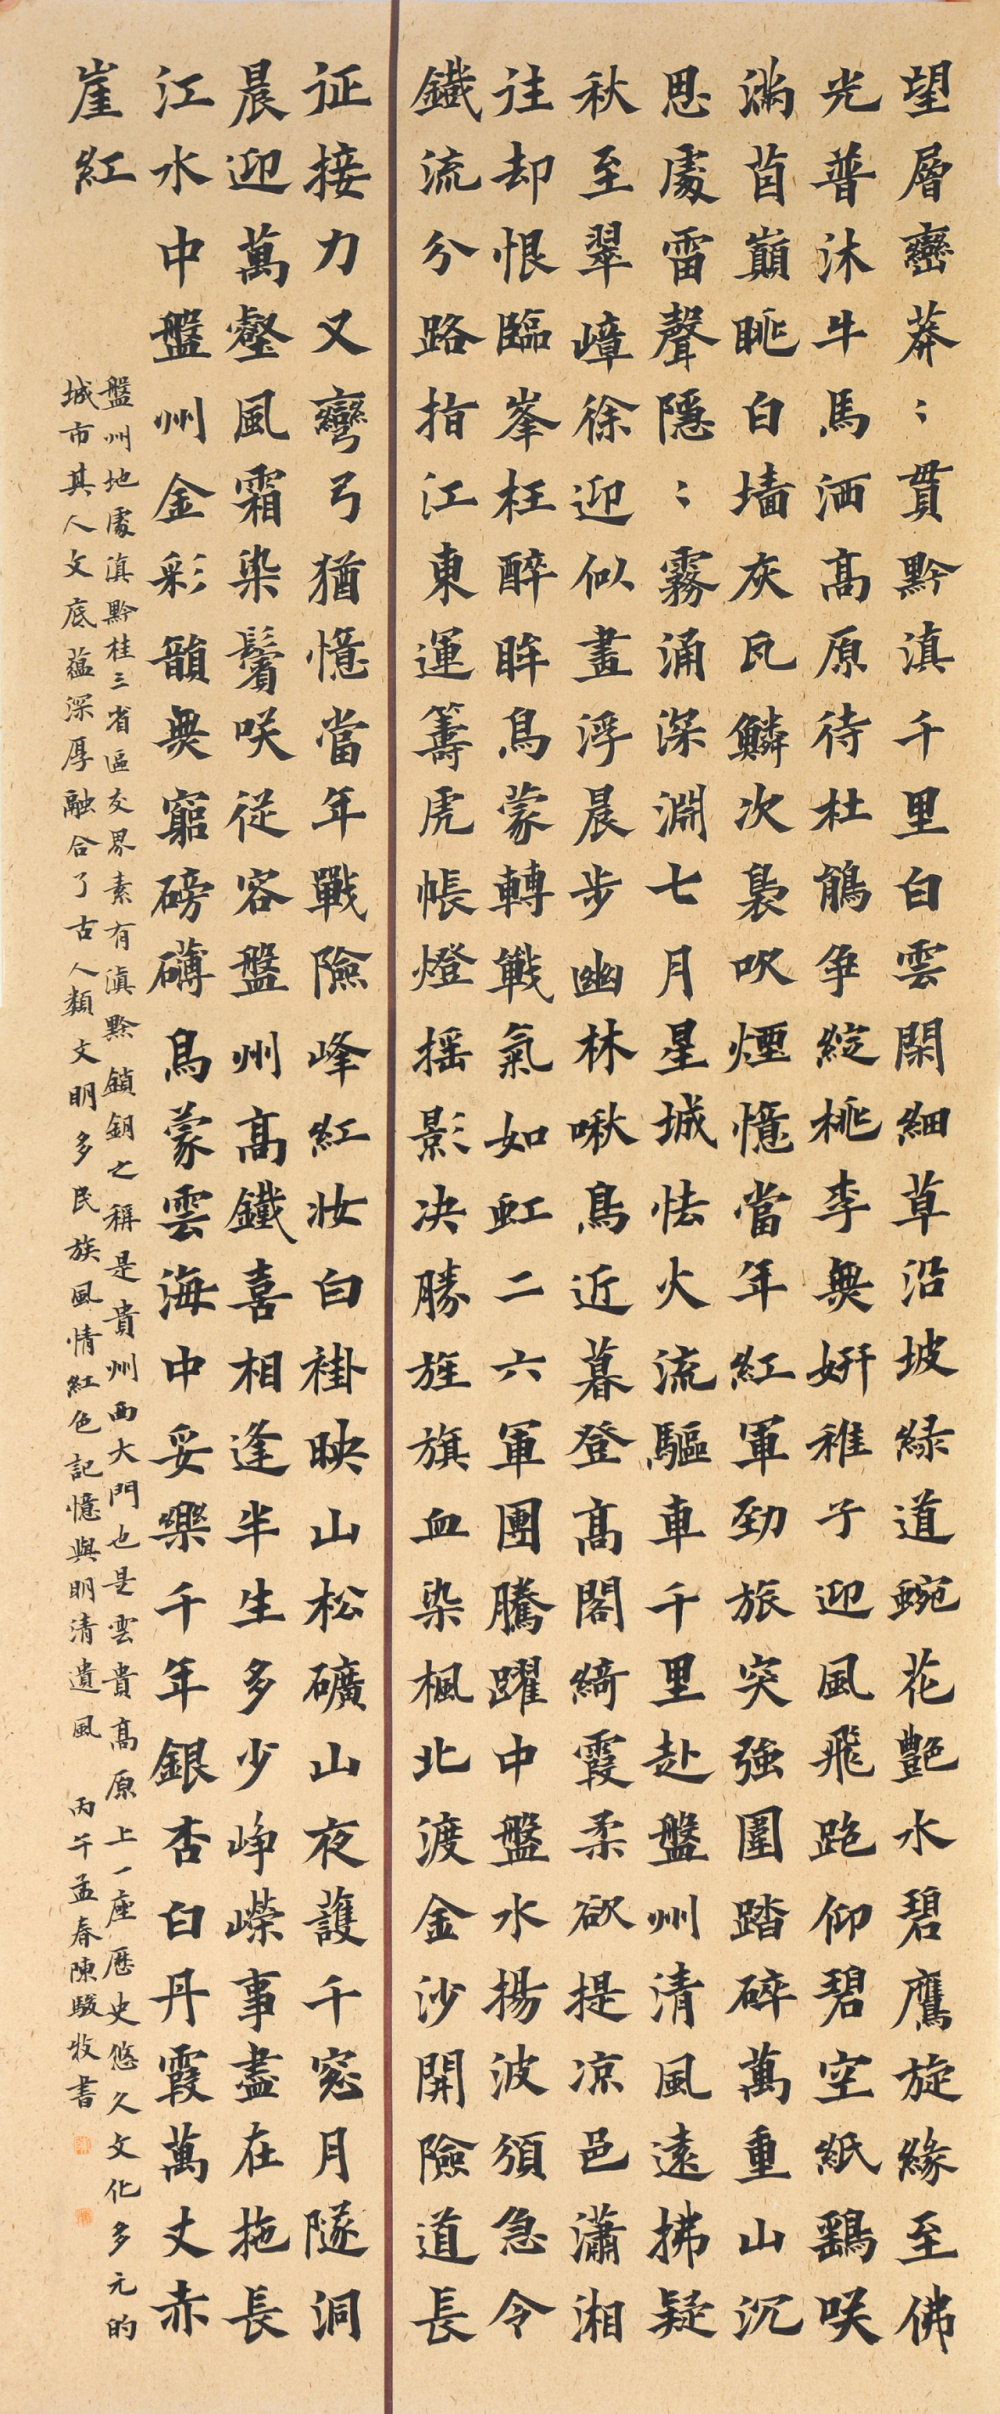 望層巒莽﹔貫黔滇千里白雲閑細草沿坡緑道蜿花艷水碧鷹旋緣至佛
光普沐牛馬洒高原待杜鵑争綻桃李無妍稚子迎風飛跑仰碧空紙鷂咲
滿茵巔眺白墙灰瓦鱗次裊吹煙憶當年紅軍勁旅突強圍踏碎萬重山沉
思處雷聲隱﹔霧涌深淵七月星城怯火流驅車千里赴盤州清風遠拂疑
秋至翠嶂徐迎似畫浮晨步幽林啾鳥近暮登高閣綺霞柔欲提凉邑瀟湘
往却恨臨峯枉醉眸烏蒙轉戰氣如虹二六軍團騰躍中盤水揚波須急令
鐵流分路指江東運籌虎帳燈摇影决勝旌旗血染楓北渡金沙開險道長
征接力又彎弓猶憶當年戰險峰紅妝白褂映山松礦山夜護千窓月隧洞
晨迎萬壑風霜染鬢咲從容盤州高鐵喜相逢半生多少峥嶸事盡在拖長
江水中盤州金彩韻無窮磅礴烏蒙雲海中妥樂千年銀杏白丹霞萬丈赤
崖紅
盤州地處滇黔桂三省區交界素有滇黔鎖鈅之稱是貴州西大門也是雲貴高原上一座歷史悠久文化多元的
城市其人文底藴深厚融合了古人類文明多民族風情紅色記憶與明清遺風 丙午孟春陳駿牧書